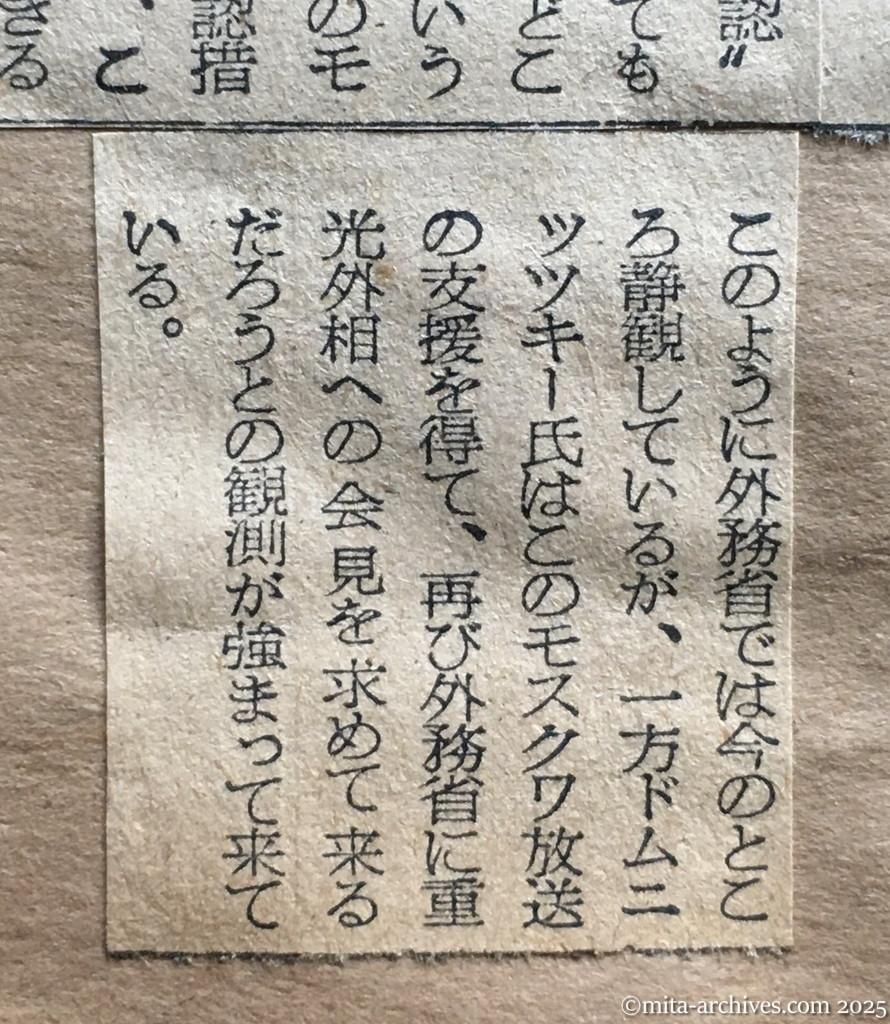 認〟
ても
どこ
いう
のモ
認措
、こ
きる
このように外務省では今のとこ
ろ静観しているが、一方ドムニ
ッツキー氏はこのモスクワ放送
の支援を得て、再び外務省に重
光外相への会見を求めて来る
だろうとの観測が強まって来て
いる。
©mita-archives.com 2025